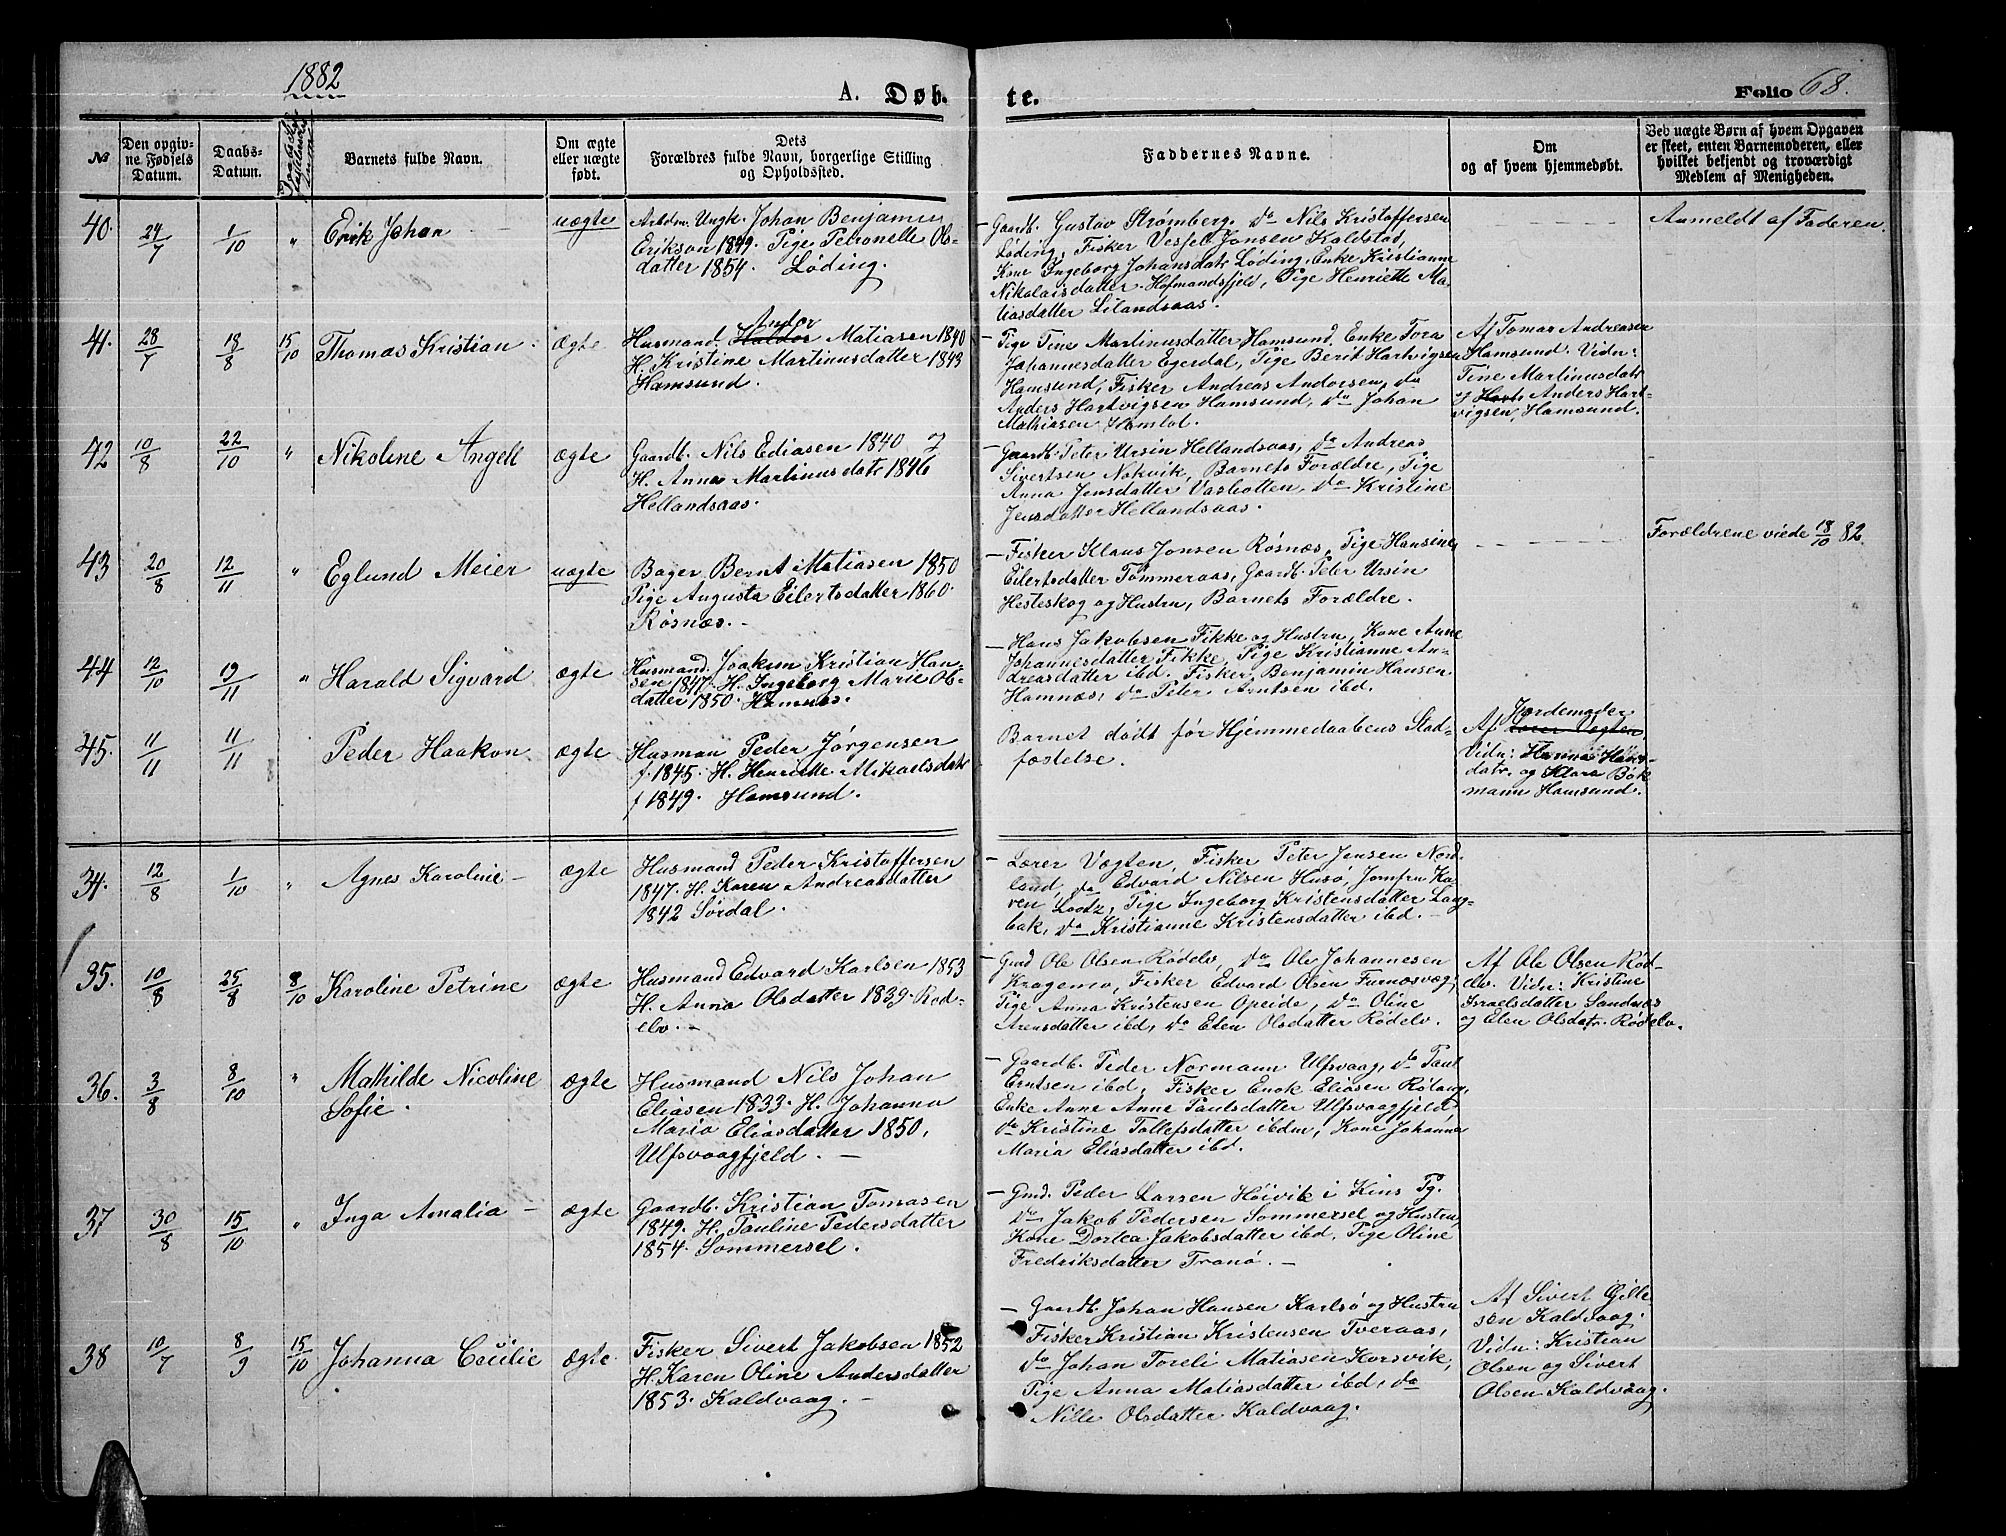 1882
A. Døb-
te.
Folio 68.
№
Den opgiv-
ne Fødsels
Datum.
Daabs-
Datum.
Barnets fulde Navn.
Om ægte
eller uægte
født.
Dets
Forældres fulde Navn, borgerlige Stilling
og Opholdssted.
Faddernes Navne.
Om
og af hvem hjemmedøbt.
Ved uægte Børn af hvem Opgaven
er skeet, enten Barnemoderen, eller
hvilket bekjendt og troværdigt
Medlem af Menigheden.
40. 24/7 1/10 " Erik Johan uægte
Arbdm. Ungk. Johan Benjamin
Erikson 1849. Pige Petronelle Ols-
datter 1854. Løding.
Gaardb. Gustav Strømberg, do Nils Kristoffersen
Løding, Fisker Jonsen Kaldstad,
Kone Ingeborg Johansdatr Løding, Enke Kristianne
Nikolaisdatter Hofmandsfjeld, Pige Henriette Ma-
tiasdatter Lilandsaas.
Anmeldt af Faderen.
41. 28/7 18/8 15/10 Thomas Kristian ægte
Husmand Haldor Andor Matiasen 1840
H. Kristine Martinusdatter 1843
Hamsund.
Pige Tine Martinusdatter Hamsund, Enke Tora
Johannesdatter Egerdal, Pige Berit Hartvigsen
Hamsund, Fisker Andreas Andorsen, do
Anders Hartvigsen Hamsund, do Johan
Mathiasen
Af Tomas Andreasen
Hamsund. Vidn:
Tine Martinusdatr
Anders Hart-
vigsen, Hamsund.
42 10/8 22/10 " Nikoline Angell ægte
Gaardb. Nils Ediasen 1840
H. Anna Martinusdatr 1846
Hellandsaas.
Gaardb. Peter Ursin Hellandsaas, do Andreas
Sivertsen Nokvik, Barnets Forældre, Pige
Anna Jensdatter Vasbotten, do Kristine
Jensdatter Hellandsaas.
43 20/8 12/11 " Eglund Meier uægte
Bager Bernt Matiasen 1850
Pige Augusta Eilertsdatter 1860.
Røsnæs.
Fisker Klaus Jonsen Røsnæs, Pige Hansine
Eilertsdatter Tømmeraas, Gaardb. Peter Ursin
Hesteskog og Hustru, Barnets Forældre.
Forældrene viede 18/10 82.
44 12/10 19/11 " Harald Sigvard ægte
Husmand Joakim Kristian Han-
sen 1847. H. Ingeborg Marie Ols-
datter 1850. Hamnæs.
Hans Jakobsen Fikke og Hustru, Kone Anne
Johannesdatter Fikke, Pige Kristianne An-
dreasdatter ibd. Fisker Benjamin Hansen
Hamnæs, do Peter Arntsen ibd.
45. 11/11 11/11 Peder Haakon ægte
Husman Peder Jørgensen
f. 1845. H. Henrikke Mikaelsdatr
f 1849. Hamsund.
Barnet dødt før Hjemmedaabens Stad-
fæstelse.
Af Jordemoder Lærer Vogten
Vidn: Hanna Hans-
datr. og Klara Bøk-
mann Hamsund.
34. 12/8 1/10 " Agnes Karoline ægte
Husmand Peder Kristoffersen
1847. H. Karen Andreasdatter
1842 Sørdal.
Lærer Vogten, Fisker Peter Jensen Nord-
land, do Edvard Nilsen Husø, Jomfru Ka-
ren Lootz, Pige Ingeborg Kristensdatter Lang-
bak, do Kristianne Kristensdatter ibd.
35. 10/8 25/8 8/10 Karoline Petrine ægte
Husmand Edvard Karlsen 1853
H. Anna Olsdatter 1839. Rød-
elv.
Gmd Ole Olsen Rødelv, do Ole Johannesen
Kragemo, Fisker Edvard Olsen Furnæsvæg,
Pige Anna Kristensen Opeide, do Oline
Arensdatter ibd, do Elen Olsdatter Rødelv.
Af Ole Olsen Rød-
elv. Vidn: Kristine
Israelsdatter Sandnæs
og Elen Olsdatr. Rødelv.
36. 3/8 8/10 " Mathilde Nicoline ægte
Sofie.
Husmand Nils Johan
Eliasen 1833. H. Johanna
Maria Eliasdatter 1850.
Ulfsvaagfjeld.
Gaardb. Peder Normann Ulfsvaag, do Paul
Erntsen ibd, Fisker Enok Eliasen Røtang,
Enke Anne Anne Paulsdatter Ulfsvaagfjeld
do Kristine Tollefsdatter ibdm, Kone Johanna
Maria Eliasdatter ibd.
37 30/8 15/10 " Inga Amalia ægte
Gaardb. Kristian Tomasen
1849. H. Pauline Pedersdatter
1854. Sommersel.
Gmd. Peder Larsen Høivik i Kins Pg.
do Jakob Pedersen Sommersel og Hustru,
Kone Dortea Jakobsdatter ibd. Pige Oline
Fredriksdatter Tranø.
38 10/7 8/9 15/10 Johanna Cecilie ægte.
Fisker Sivert Jakobsen 1852
H. Karen Oline Andersdatter
1853. Kaldvaag.
Gaardb. Johan Hansen Karlsø og Hustru
Fisker Kristian Kristensen Tveraas,
do Johan Toreli Matiasen Korsvik,
Pige Anna Matiasdatter ibd, do
Nille Olsdatter Kaldvaag.
Af Sivert Gille-
sen Kaldvaag.
Vidn: Kristian
Olsen og Sivert
Olsen Kaldvaag.